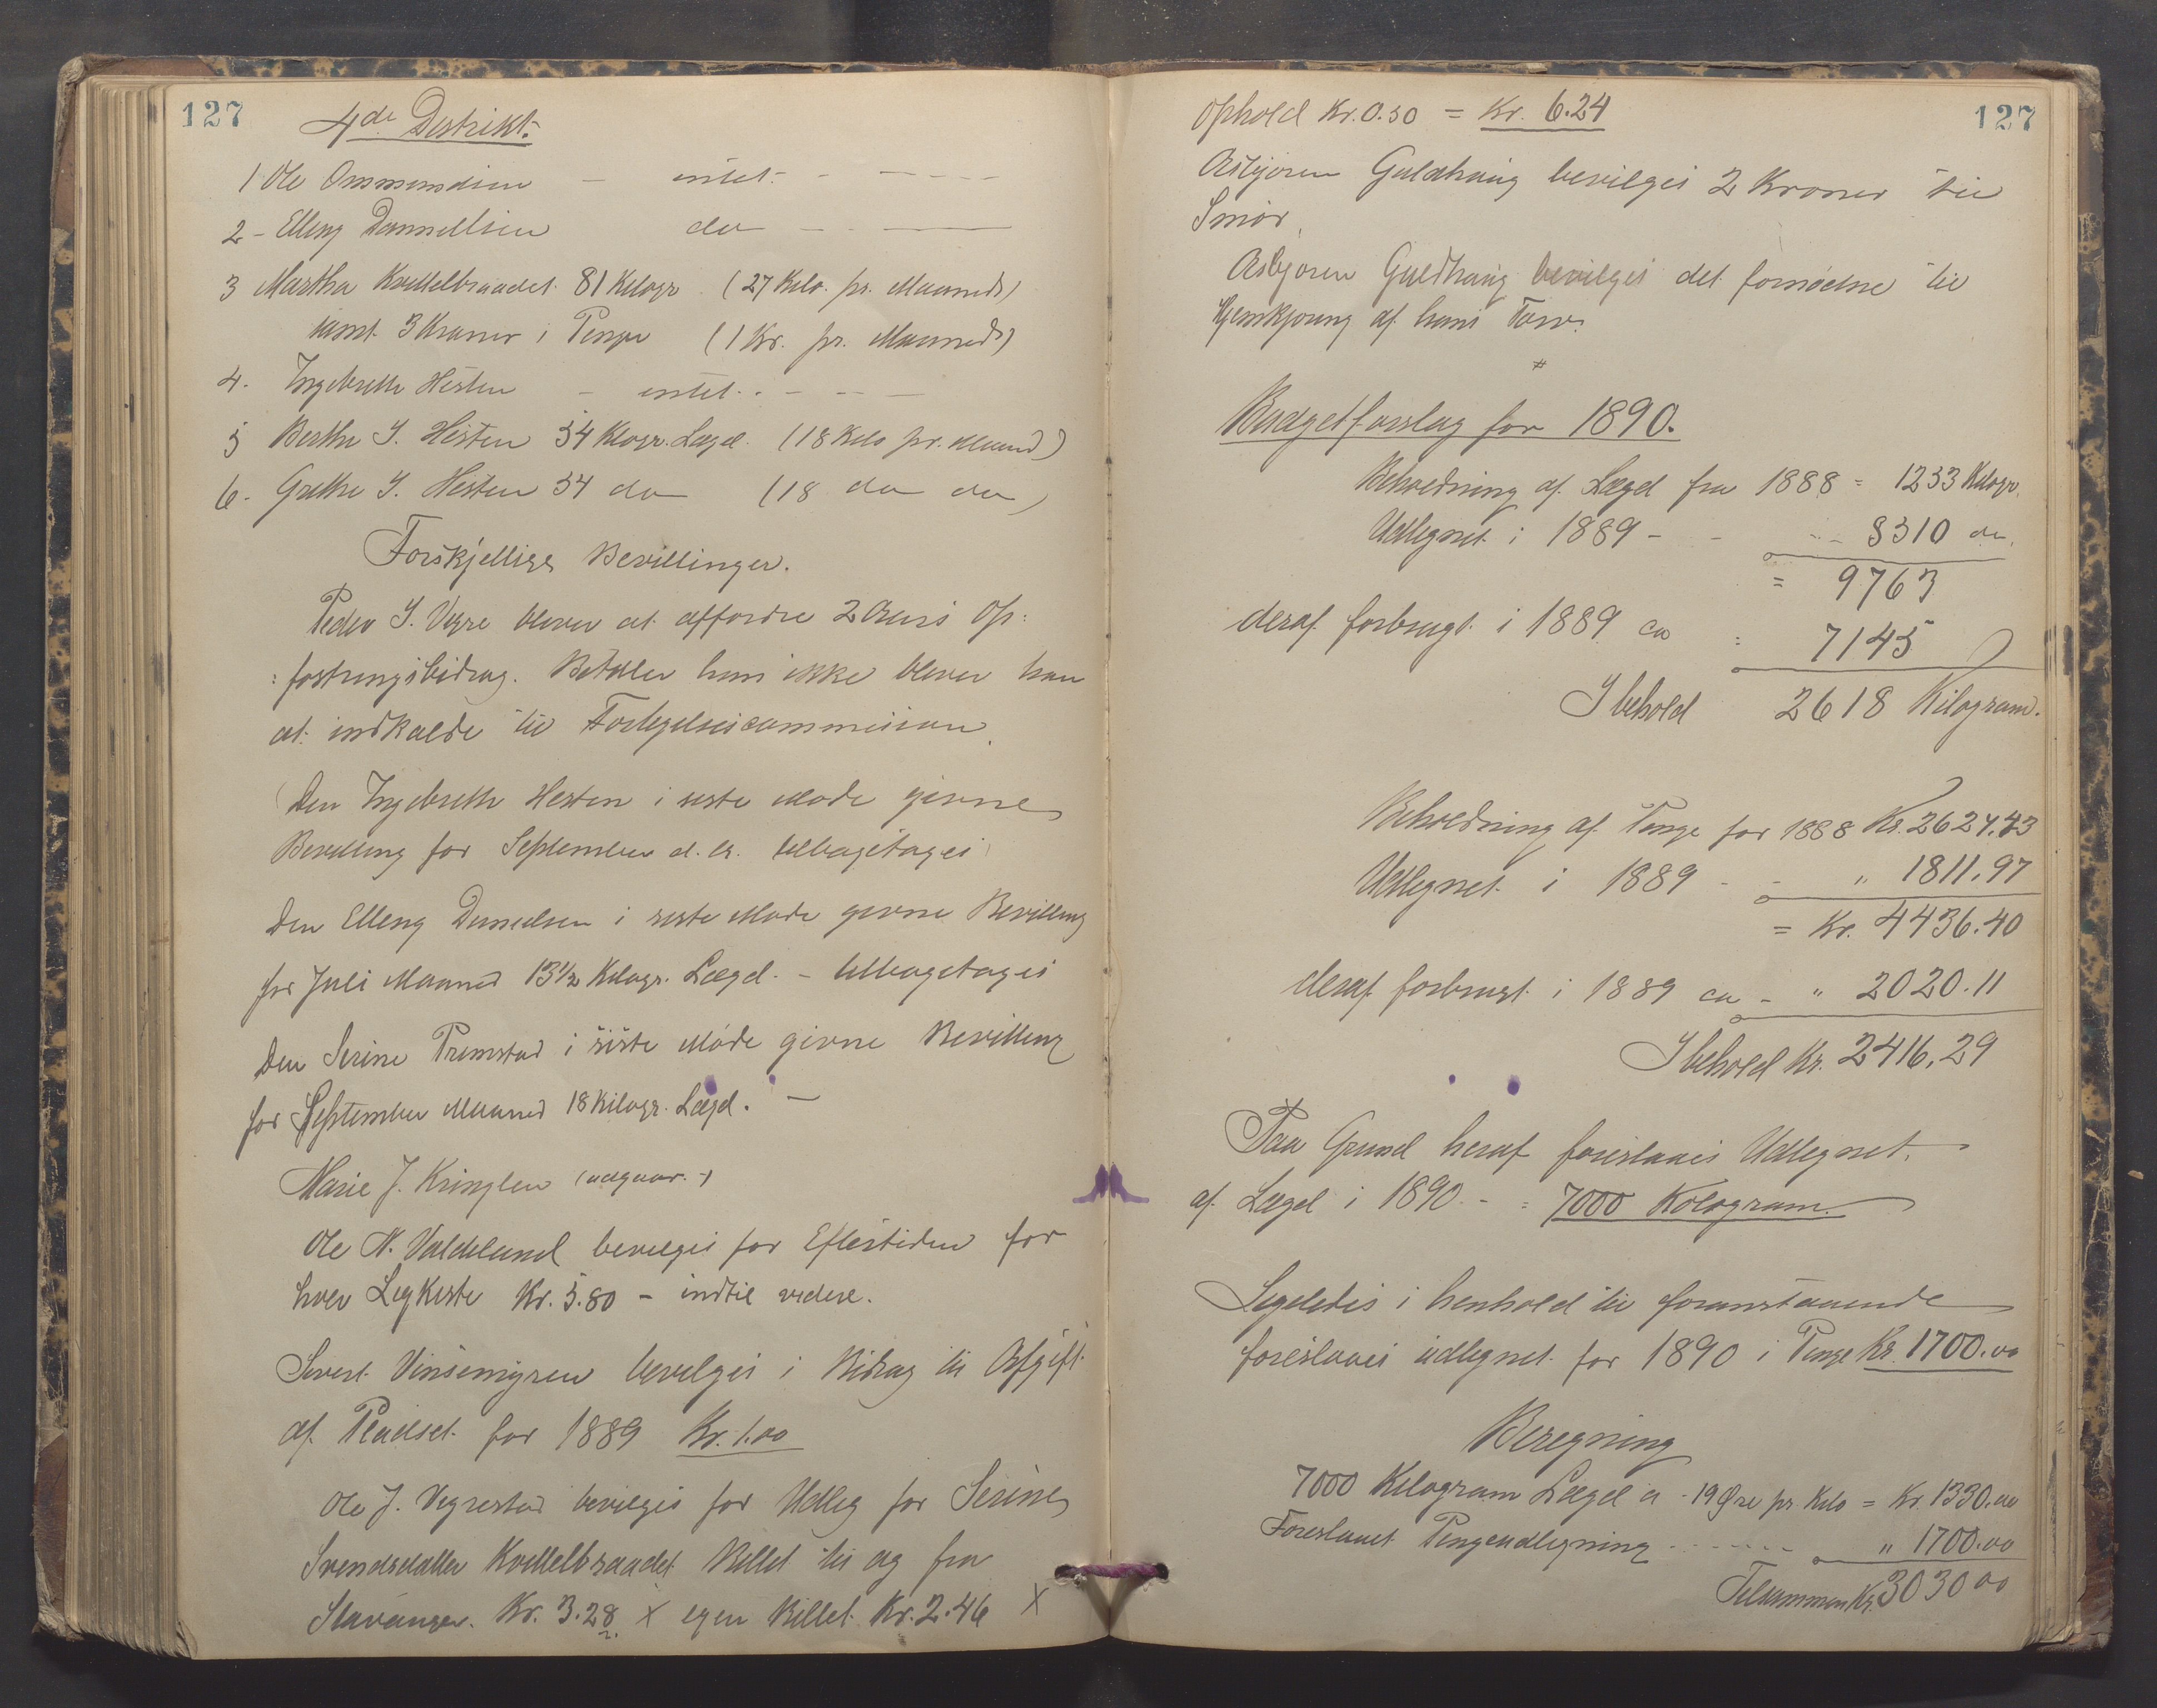 127
4de Distrikt.
1 Ole Ommundsen - intet. - - - - -
2 - Elling Danniellsen do - - -
3 Martha Kvellelbraadet 81 Kilogr (27 Kilo. pr. Maaned)
samt 3 Kroner i Penge (1 Kr. pr. Maaned)
4. Ingebrethe Hesten - intet. - - -
5 Berthe S. Hesten 54 Kilogr. Lægd. (18 Kilo pr. Maaned)
6. Grethe S. Hesten 54 do (18 do do)
Forskjellige Bevillinger.
Peder S. Vegre bliver at affordre 2 Aars Op:
:fostringsbidrag. Betaler han ikke bliver han
at indkalde til Forligelsescommission.
Den Ingebrethe Hesten i siste Møde givne
Bevilling for September d. A. tilbagetages
Den Elling Danielsen i siste Møde givne Bevilling
for Juli Maaned 13½ Kilogr. Lægd. - tilbagetages
Den Serine Tremstad i siste Møde givne Bevilling
for September Maaned 18 Kilogr. Lægd. -
Marie J. Kringlen (udgaar.)
Ole N. Valdeland bevilges for Eftertiden for
hver Ligkiste Kr. 5.80 - indtil videre.
Sivert Vinsemyren bevilges i Bidrag til Afgift
af Pladset for 1889 Kr. 1.00
Ole J. Vegrestad bevilges for Udlæg for Serine
Svendsdatter Kvellelbraadet Billet til og fra
Stavanger. Kr. 3.28 X egen Billet Kr. 2.46 X
127
Ophold Kr. 0.50 = Kr. 6.24
Asbjøren Guldhaug bevilges 2 Kroner til
Smør.
Asbjøren Guldhaug bevilges det fornødne til
Hjemkjøring af hans Torv.
Budgetforslag for 1890.
Beholdning af Lægd fra 1888 = 1233 Kilogr.
Udlignet i 1889 - - 8310 do.
= 9763
deraf forbrugt i 1889 ca = 7145
Ibehold 2618 Kilogram.
Beholdning af Penge for 1888 Kr. 2624.43
Udlignet i 1889 - - " 1811.97
= Kr. 4436.40
deraf forbrugt i 1889 ca - " 2020.11
Ibehold Kr. 2416,29
Paa Grund heraf foreslaaes Udlignet
af Lægd i 1890 - = 7000 Kilogram.
Ligeledes i henhold til foranstaaende
foreslaaes udlignet for 1890 i Penge Kr. 1700.00
Beregning
7000 Kilogram Lægd a - 19 Øre pr. Kilo = Kr. 1330.00
Foreslaaet Pengeudligning - - - - - " 1700.00
Tilsammen Kr. 3030 00